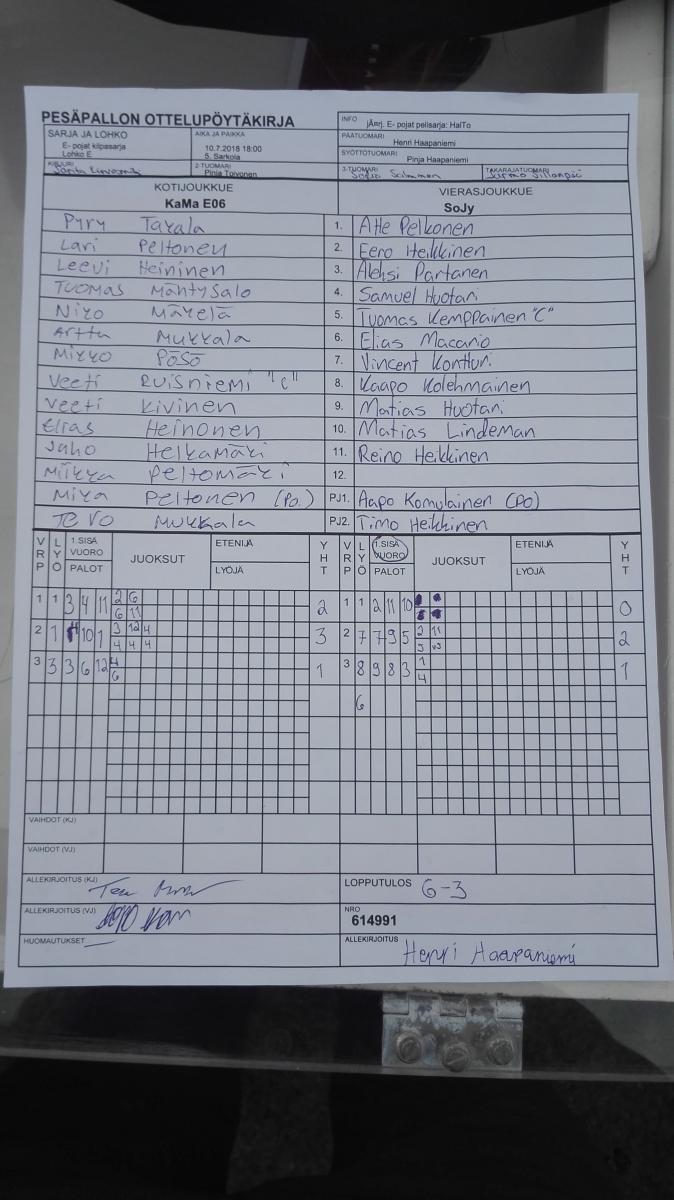 PESÄPALLON OTTELUPÖYTÄKIRJA
SARJA JA LOHKO
E- pojat kilpasarja
Lohko E
AIKA JA PAIKKA
10.7.2018 18:00
5. Sarkola
INFO jÄrrj. E- pojat pelisarja: HalTo
PÄÄTUOMARI
Henri Haapaniemi
SYÖTTÖTUOMARI
Pinja Haapaniemi
KIRJURI
2-TUOMARI
Pinja Toivonen
3-TUOMARI
TAKARAJATUOMARI
KOTIJOUKKUE
KaMa E06
VIERASJOUKKUE
SoJy
Pyry Takala 1. Atte Pelkonen
Lari Peltonen 2. Eero Heikkinen
Leevi Heininen 3. Aleksi Partanen
Tuomas Mäntysalo 4. Samuel Huotari
Niko Mäkelä 5. Tuomas Kemppainen "C"
Arttu Mukkala 6. Elias Macario
Mikko Pösö 7. Vincent Konttori
Veeti Ruisniemi "C" 8. Kaapo Kolehmainen
Veeti Kivinen 9. Matias Huotari
Elias Heinonen 10. Matias Lindeman
Juho Helkamäki 11. Reino Heikkinen
Miikka Peltomäki 12.
Mika Peltonen (Po.) PJ1. Aapo Komulainen (PO)
Tero Mukkala PJ2. Timo Heikkinen
VRP LYÖ 1.SISÄ VUORO PALOT JUOKSUT ETENIJÄ LYÖJÄ YHT VRP LYÖ 1.SISÄ VUORO PALOT JUOKSUT ETENIJÄ LYÖJÄ YHT
1 1 3 4 11 2 6 2 1 1 2 11 10 0
6 11
2 1 10 1 3 12 4 3 2 7 7 9 5 2 11 2
4 4 4
3 3 3 6 12 4 1 3 8 9 8 3 1 1
6 4
6
VAIHDOT (KJ)
VAIHDOT (VJ)
ALLEKIRJOITUS (KJ)
LOPPUTULOS 6-3
ALLEKIRJOITUS (VJ)
NRO
614991
HUOMAUTUKSET
ALLEKIRJOITUS
Henri Haapaniemi